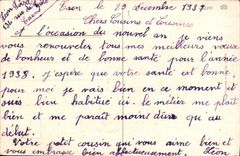 Le 29 Décembre 1937
Chers Cousins et Cousines
A l'occasion du nouvel an je viens
vous renouveler tous mes meilleurs vœux
de bonheur et de bonne santé pour l'année
1938. J'espère que votre santé est bonne,
pour moi je vais bien en ce moment et
suis bien habitué ici. le métier me plaît
bien et me paraît moins dur qu au
début.
Votre petit cousin qui vous aime bien et
vous embrasse bien affectueusement. Léon.